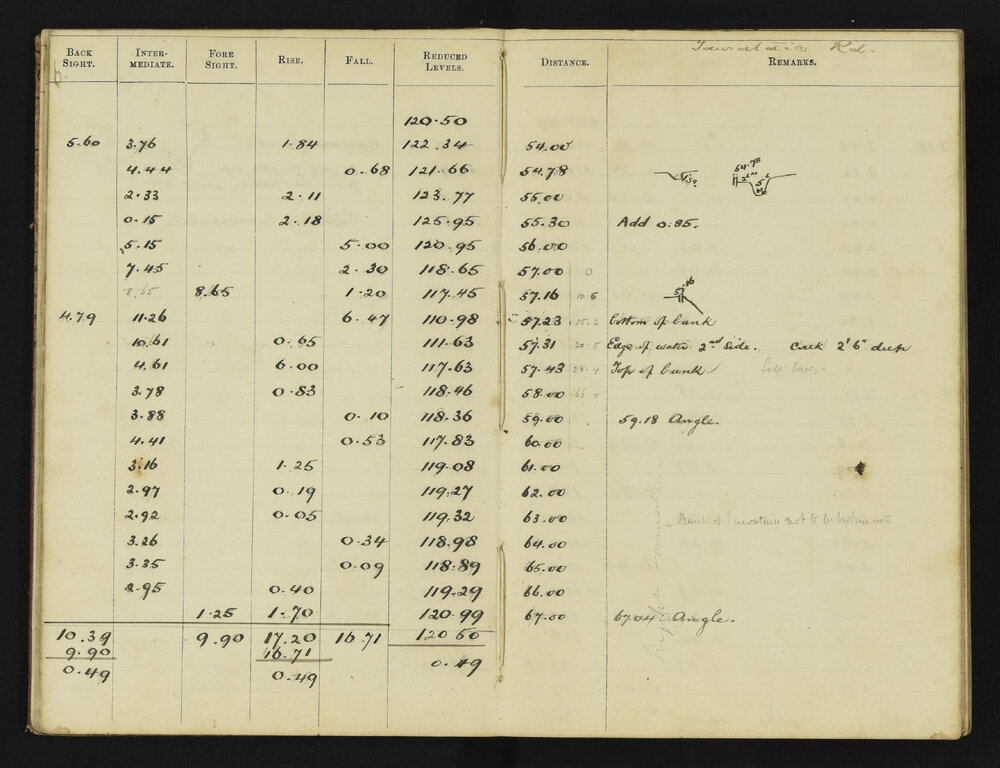 Rd.
BACK SIGHT. INTER-MEDIATE. FORE SIGHT. RISE. FALL. REDUCED LEVELS. DISTANCE. REMARKS.
6.
120.50
5.60 3.76 1.84 122.34 54.00
4.44 0.68 121.66 54.78 54.78
2.33 2.11 123.77 55.00
0.15 2.18 125.95 55.30 Add 0.85.
5.15 5.00 120.95 56.00
7.45 2.30 118.65 57.00 0
8.65 8.65 1.20 117.45 57.16 10.6 57.16
4.79 11.26 6.47 110.98 57.23 15.2 bottom of bank
10.61 0.65 111.63 57.31 20.5 Edge of water 2nd side. Creek 2' 6" deep
4.61 6.00 117.63 57.43 28.4 Top of bank
3.78 0.83 118.46 58.00 66.0
3.88 0.10 118.36 59.00 59.18 Angle.
4.41 0.53 117.83 60.00
3.16 1.25 119.08 61.00
2.97 0.19 119.27 62.00
2.92 0.05 119.32 63.00 not to be
3.26 0.34 118.98 64.00
3.35 0.09 118.89 65.00
2.95 0.40 119.29 66.00
1.25 1.70 120.99 67.00 6704 Angle.
10.39 9.90 17.20 16.71 120.50
9.90 16.71
0.49 0.49 0.49